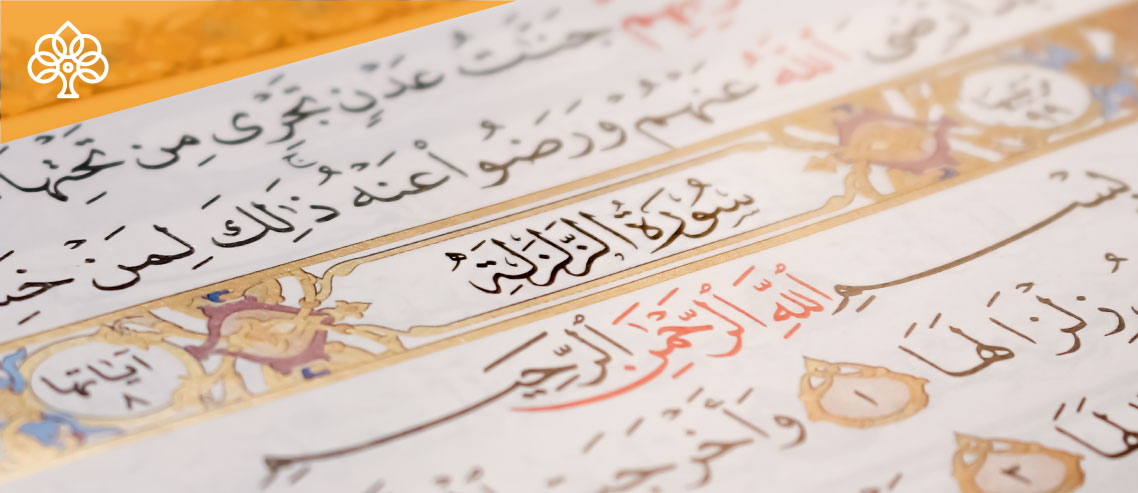 جَنَّٰتُ عَدْنٍ تَجْرِى مِن تَحْتِهَا
رَضِىَ اللَّهُ عَنْهُمْ وَرَضُوا عَنْهُ ذَٰلِكَ لِمَنْ
رقمها ٩٩ سُورَةُ الزَّلْزَلَةِ آياتها ٨
بِسْمِ اللَّهِ الرَّحْمَٰنِ الرَّحِيمِ
زِلْزَالَهَا ١ وَأَخْرَجَتِ
٢